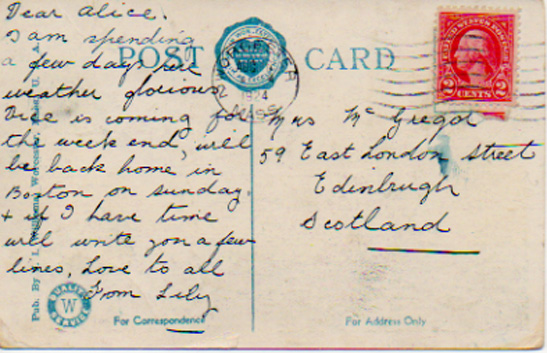 Dear Alice.
I am spending
a few days here
weather glorious
is coming for
the week end, will
be back home in
Boston on sunday.
+ if I have time
will write you a few
lines, Love to all
From Lily
POST CARD
WORCESTER
1924
MASS
UNITED STATES POSTAGE
2 CENTS 2
Mrs Mc Gregor
59 East London Street
Edinbrugh
Scotland
Pub. By
QUALITY
W
SERVICE
For Correspondence
For Address Only